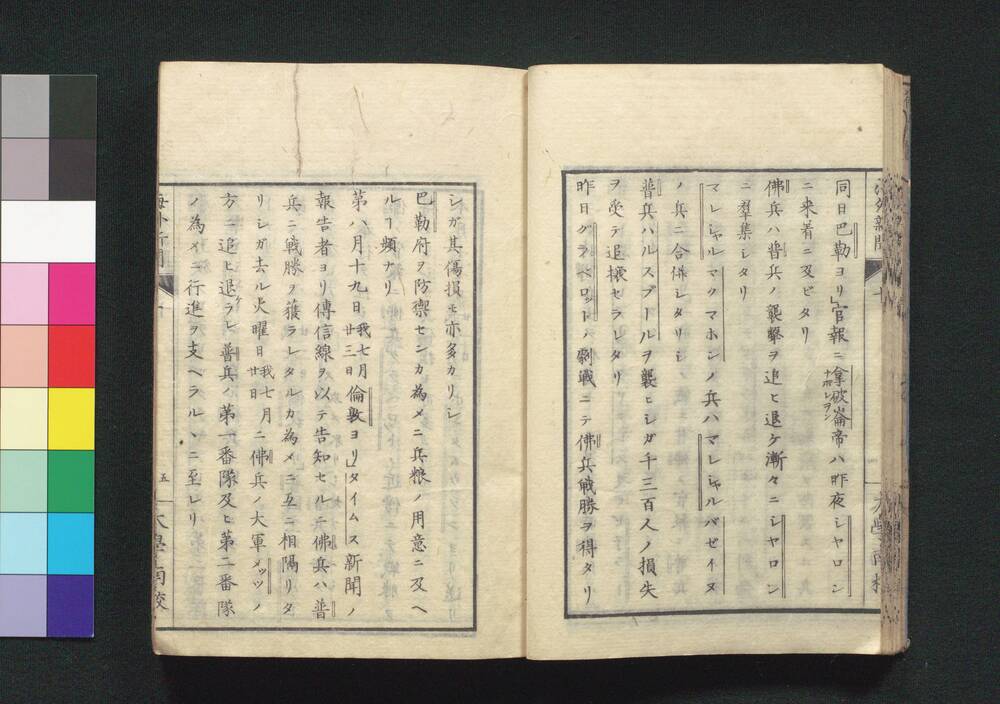 同日巴勒ヨリ」官報ニ拿破崙帝ハ昨夜シヤロン
ナポレヲン
ニ来着ニ及ビタリ
佛兵ハ普兵ノ襲撃ヲ追ヒ退ケ漸々ニシヤロン
ニ羣集シタリ
マレシヤルマクマホンノ兵ハマレシヤルバゼイヌ
ノ兵ニ合併シタリシ
普兵ハルスブールヲ襲ヒシガ千三百人ノ損失
ヲ受テ追
セラレタリ
昨日グラベロットノ劇戦ニテ佛兵戦勝ヲ得タリ
シガ其傷損モ亦多カリシ
巴勒府ヲ防禦センカ為メニ兵粮ノ用意ニ及ベ
ルヿ頻ナリ
第八月十九日我七月廿三日倫敦ヨリ」タイムス新聞ノ
報告者ヨリ傳信線ヲ以テ告知セル佛兵ハ普
兵ニ戦勝ヲ獲ラレタルカ為メニ互ニ相隔リタ
リシガ去ル火曜日我七月廿日ニ佛兵ノ大軍メッツノ
方ニ追ヒ退ラレ普兵ノ第一番隊及ヒ第二番隊
ノ為メニ行進ヲ支ヘラルヽニ至レリ
海外新聞
五
大學南校